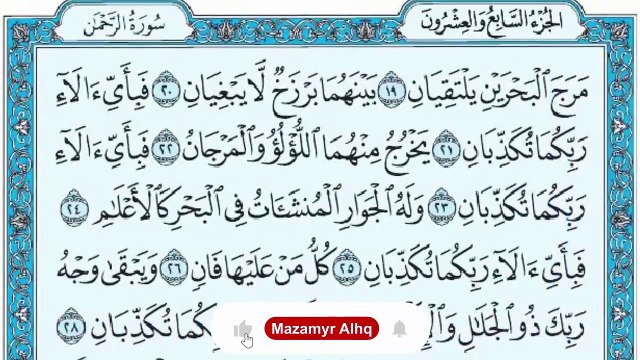 الجُزْءُ السَّابِعُ وَالعِشْرُونَ
سُورَةُ الرَّحْمٰن
مَرَجَ ٱلْبَحْرَيْنِ يَلْتَقِيَانِ ١٩ بَيْنَهُمَا بَرْزَخٌ لَّا يَبْغِيَانِ ٢٠ فَبِأَيِّ ءَالَآءِ
رَبِّكُمَا تُكَذِّبَانِ ٢١ يَخْرُجُ مِنْهُمَا ٱللُّؤْلُؤُ وَٱلْمَرْجَانُ ٢٢ فَبِأَيِّ ءَالَآءِ
رَبِّكُمَا تُكَذِّبَانِ ٢٣ وَلَهُ ٱلْجَوَارِ ٱلْمُنشَـَٔاتُ فِى ٱلْبَحْرِ كَٱلْأَعْلَٰمِ ٢٤
فَبِأَيِّ ءَالَآءِ رَبِّكُمَا تُكَذِّبَانِ ٢٥ كُلُّ مَنْ عَلَيْهَا فَانٍ ٢٦ وَيَبْقَىٰ وَجْهُ
رَبِّكَ ذُو ٱلْجَلَٰلِ تُكَذِّبَانِ ٢٨
Mazamyr Alhq